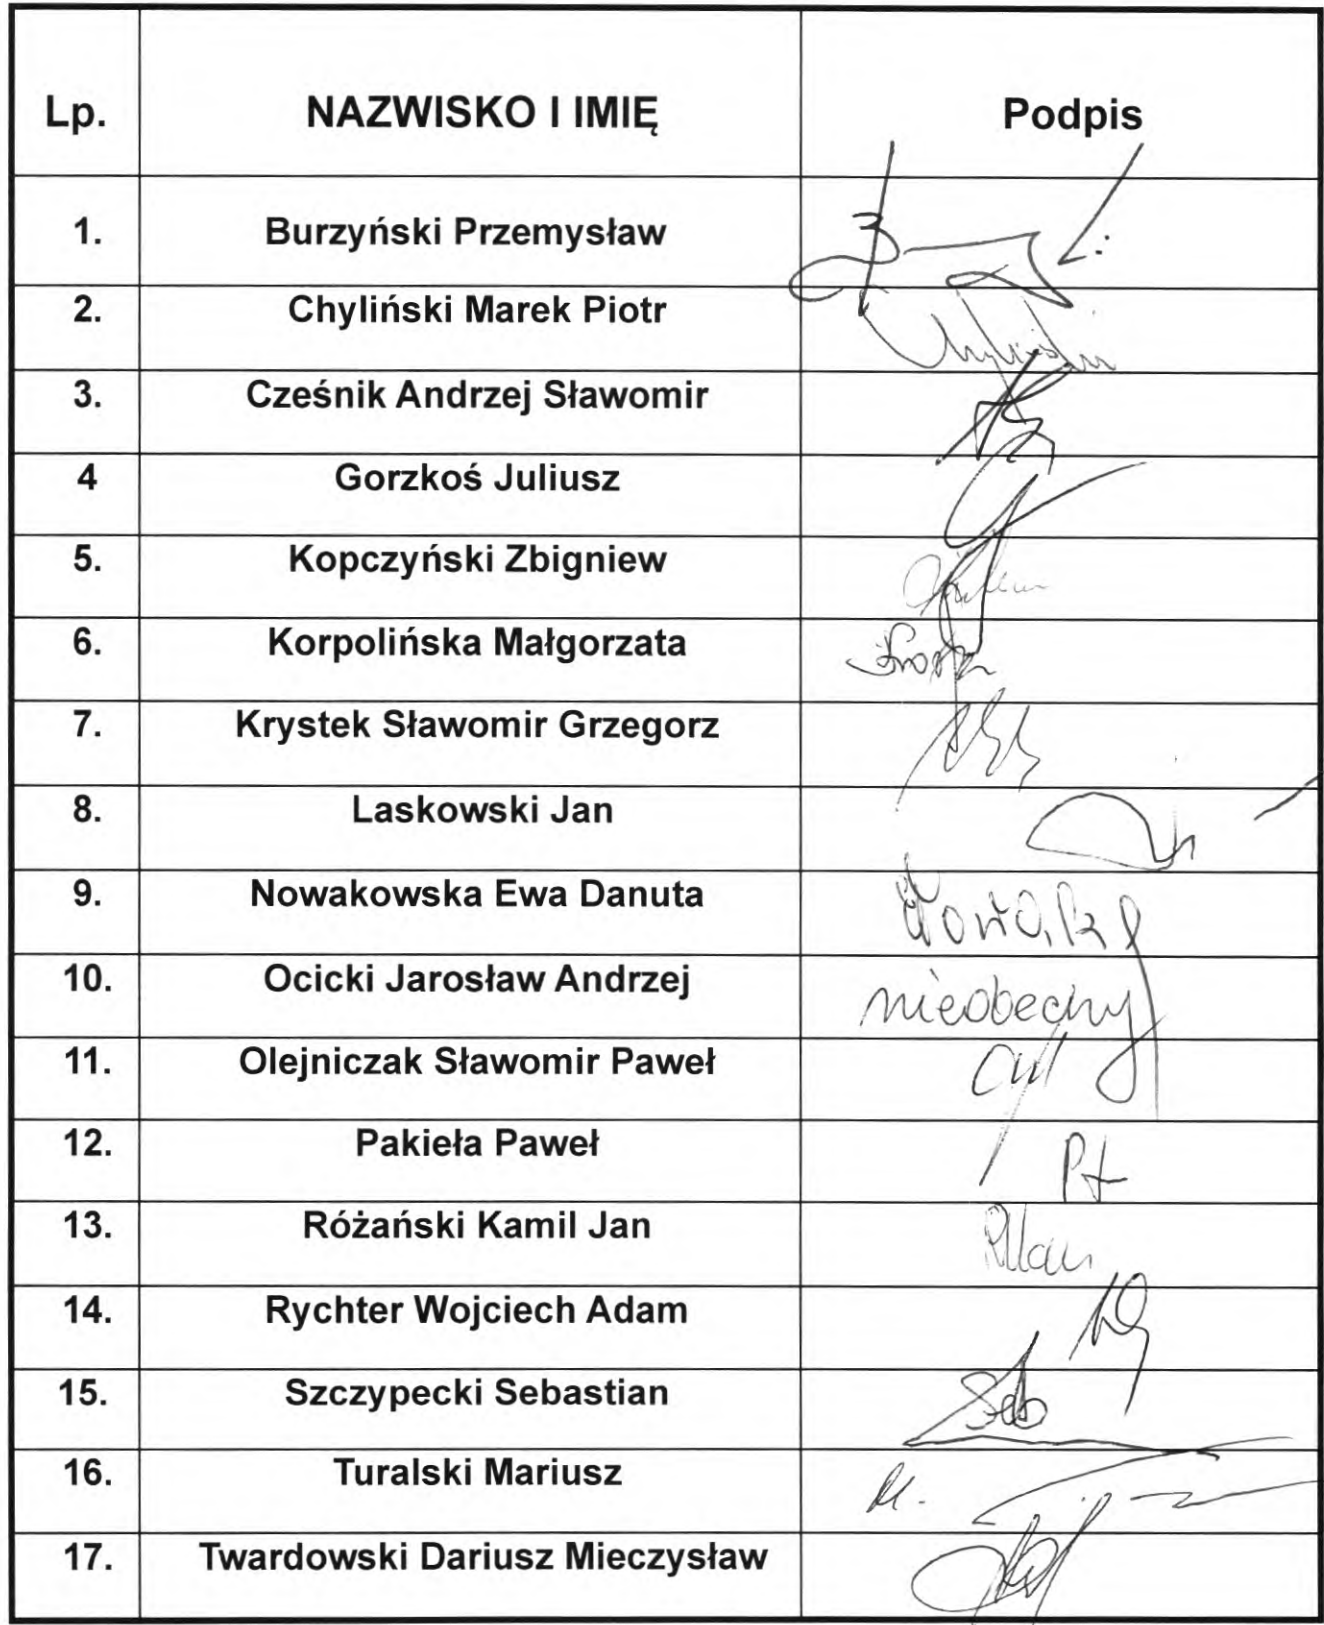 Lp. NAZWISKO I IMIĘ Podpis
1. Burzyński Przemysław
2. Chyliński Marek Piotr Chyliński
3. Cześnik Andrzej Sławomir
4 Gorzkoś Juliusz
5. Kopczyński Zbigniew
6. Korpolińska Małgorzata
7. Krystek Sławomir Grzegorz
8. Laskowski Jan
9. Nowakowska Ewa Danuta
10. Ocicki Jarosław Andrzej nieobecny
11. Olejniczak Sławomir Paweł
12. Pakieła Paweł
13. Różański Kamil Jan
14. Rychter Wojciech Adam
15. Szczypecki Sebastian
16. Turalski Mariusz
17. Twardowski Dariusz Mieczysław